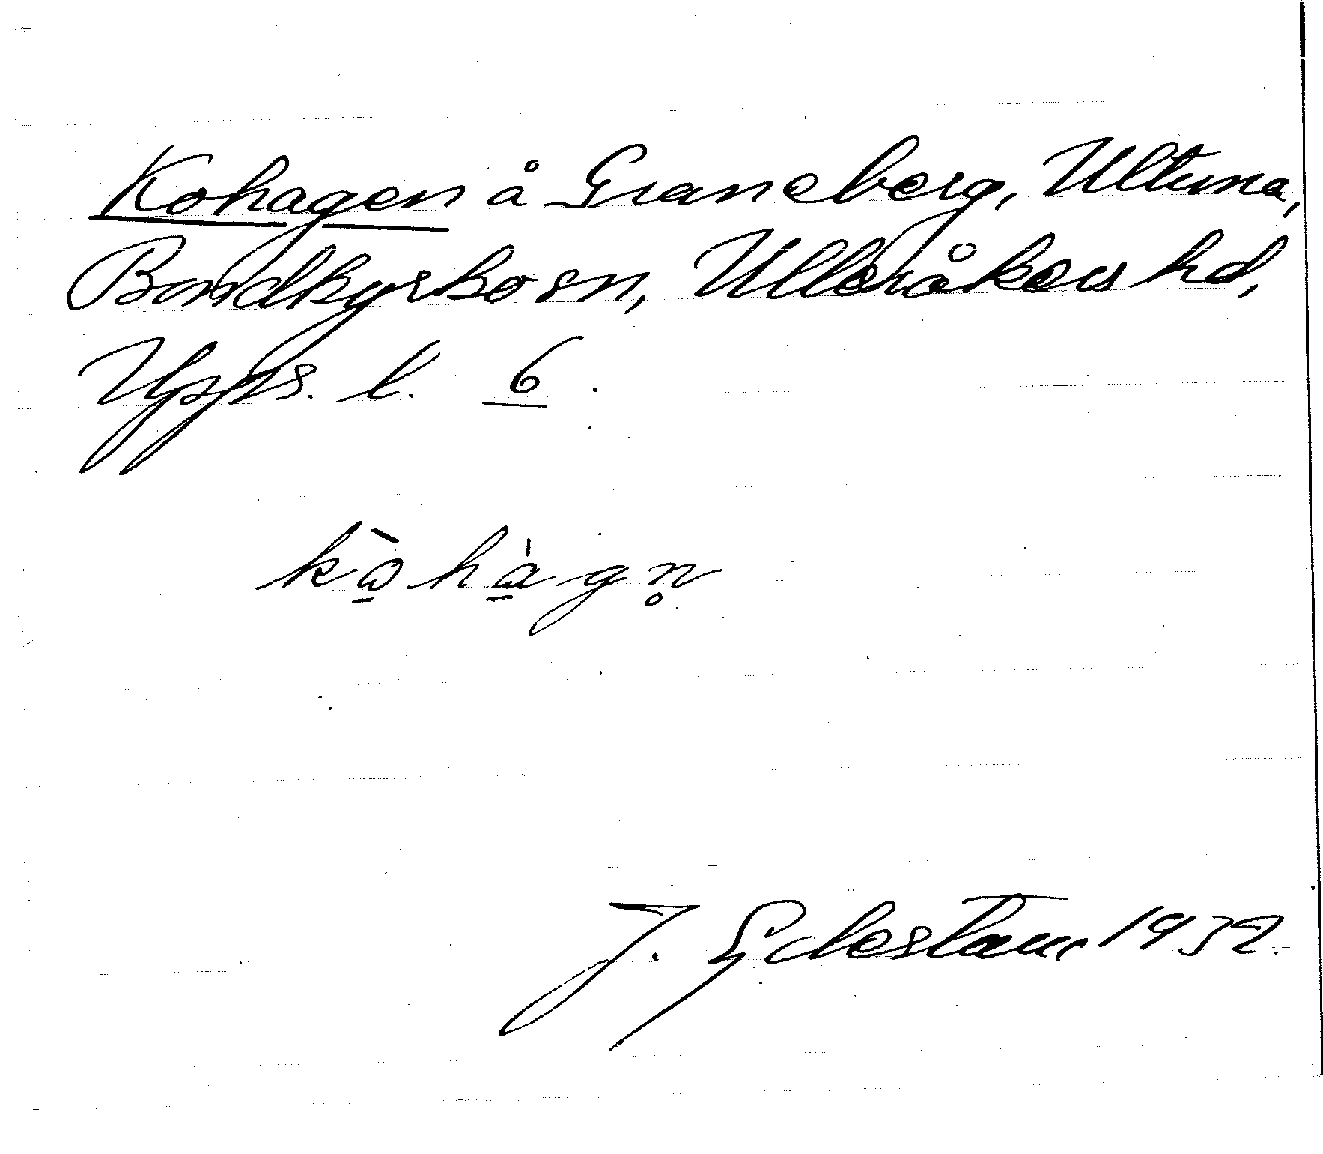 Kohagen å Graneberg, Ultuna,
Bondkyrko sn, Ulleråkers hd,
Upps. l. 6.
kὼ̱ha̱̍gn̥
J. Edestam 1932